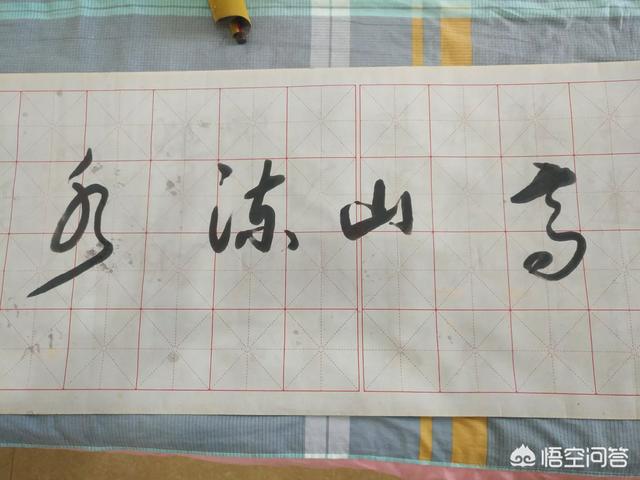 高山流水
悟空问答